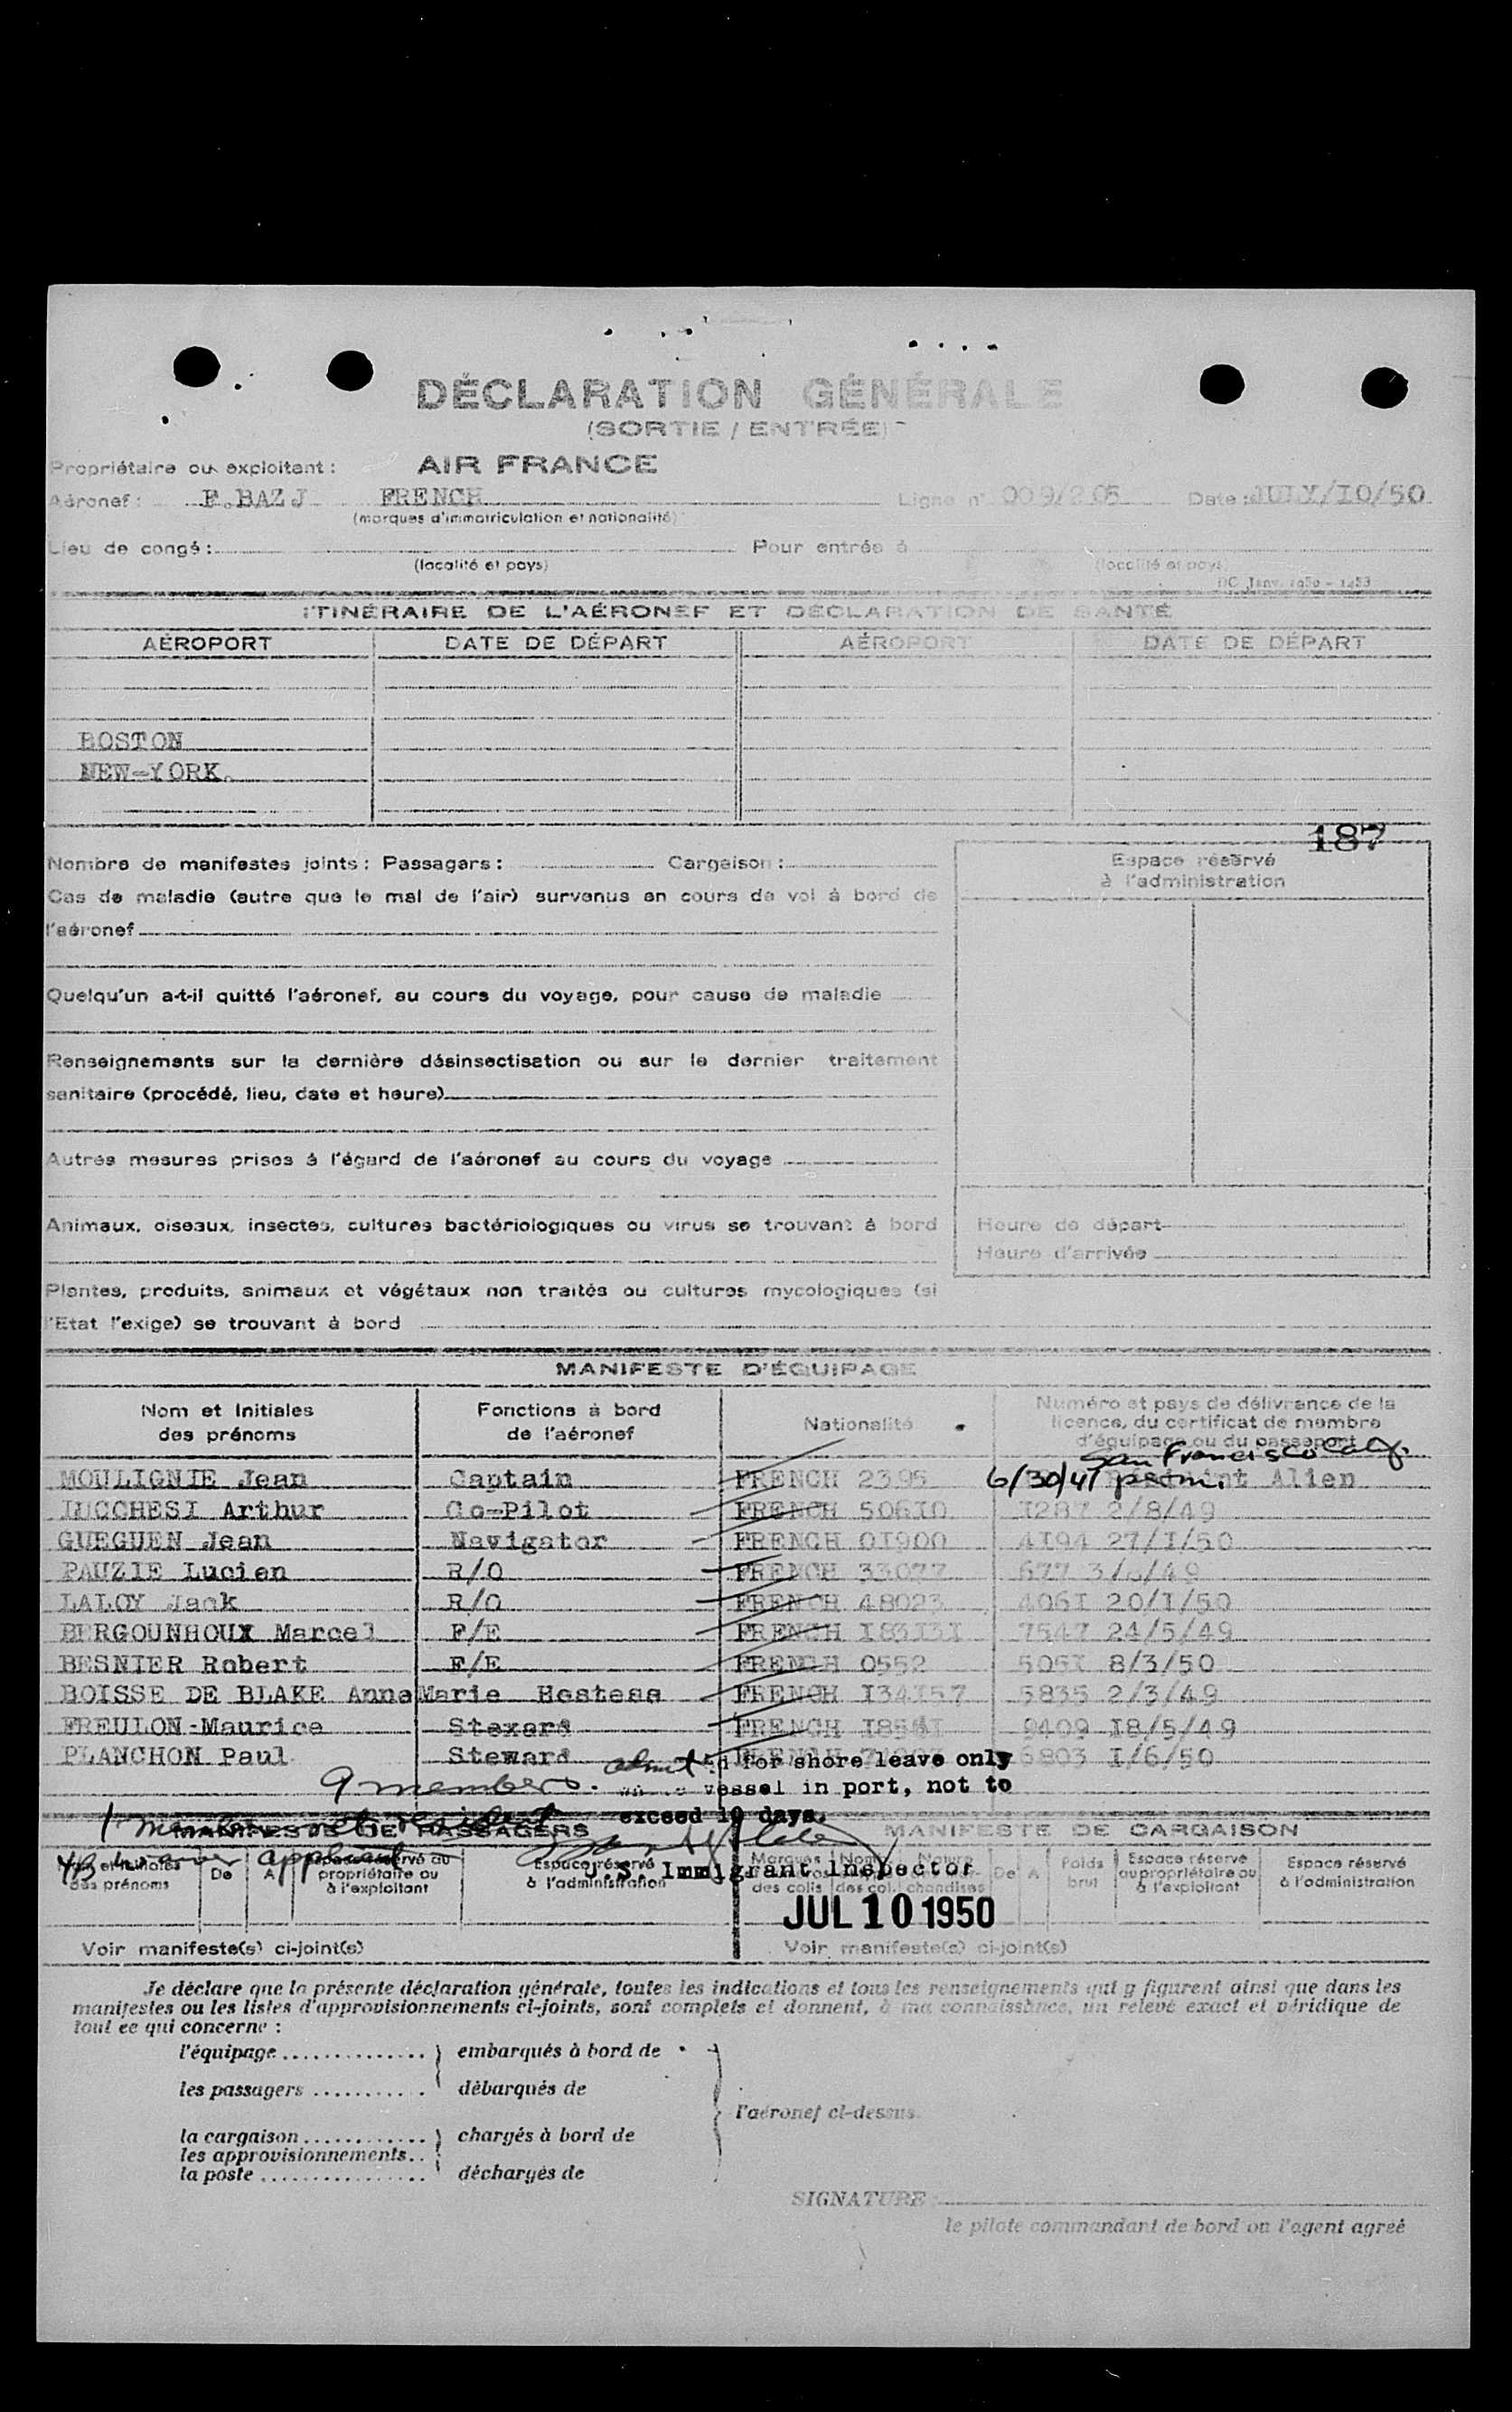 DÉCLARATION GÉNÉRALE
(SORTIE / ENTRÉE)
Propriétaire ou exploitant : AIR FRANCE
Aéronef : F.BAZJ FRENCH Ligne n° 009/205 Date : JULY/I0/50
(marques d'immatriculation et nationalité)
Lieu de congé : Pour entrée à
(localité et pays) (localité et pays)
ITINÉRAIRE DE L'AÉRONEF ET DÉCLARATION DE SANTÉ
AÉROPORT DATE DE DÉPART AÉROPORT DATE DE DÉPART
BOSTON
NEW-YORK.
187
Nombre de manifestes joints : Passagers : Cargaison :
Espace réservé
à l'administration
Cas de maladie (autre que le mal de l'air) survenus en cours de vol à bord de
l'aéronef
Quelqu'un a-t-il quitté l'aéronef, au cours du voyage, pour cause de maladie
Renseignements sur la dernière désinsectisation ou sur le dernier traitement
sanitaire (procédé, lieu, date et heure)
Autres mesures prises à l'égard de l'aéronef au cours du voyage
Animaux, oiseaux, insectes, cultures bactériologiques ou virus se trouvant à bord
Heure de départ
Heure d'arrivée
Plantes, produits, animaux et végétaux non traités ou cultures mycologiques (si
l'Etat l'exige) se trouvant à bord
MANIFESTE D'ÉQUIPAGE
Nom et Initiales des prénoms Fonctions à bord de l'aéronef Nationalité Numéro et pays de délivrance de la licence, du certificat de membre d'équipage ou du passeport
San Francisco Calif.
MOULIGNIE Jean Captain FRENCH 2395 6/30/47 perm. Alien
LUCCHESI Arthur Co-Pilot FRENCH 506I0 I287 2/8/49
GUEGUEN Jean Navigator FRENCH 0I900 4I94 27/I/50
PAUZIE Lucien R/O FRENCH 33077 677 /49
LALOY Jack R/O FRENCH 48023 406I 20/I/50
BERGOUNHOUX Marcel F/E FRENCH I83I3I 7547 24/5/49
BESNIER Robert F/E FRENCH 0552 505I 8/3/50
BOISSE DE BLAKE AnneMarie Hostess FRENCH I34I57 5835 2/3/49
FREULON-Maurice Stexard FRENCH 9409 I8/5/49
PLANCHON Paul Steward 6803 I/6/50
9 members. admitted for shore leave only
vessel in port, not to
exceed 10 days.
1 member
MANIFESTE DE PASSAGERS MANIFESTE DE CARGAISON
U.S. Immigrant Inspector
Nom et initiales des prénoms De A Espace réservé au propriétaire ou à l'exploitant Espace réservé à l'administration Marques des colis Nom des col. Nature chandises De A Poids brut Espace réservé au propriétaire ou à l'exploitant Espace réservé à l'administration
JUL 10 1950
Voir manifeste(s) ci-joint(s) Voir manifeste(s) ci-joint(s)
Je déclare que la présente déclaration générale, toutes les indications et tous les renseignements qui y figurent ainsi que dans les
manifestes ou les listes d'approvisionnements ci-joints, sont complets et donnent, à ma connaissance, un relevé exact et véridique de
tout ce qui concerne :
l'équipage embarqués à bord de
les passagers débarqués de
l'aéronef ci-dessus.
la cargaison chargés à bord de
les approvisionnements
la poste déchargés de
SIGNATURE :
le pilote commandant de bord ou l'agent agréé